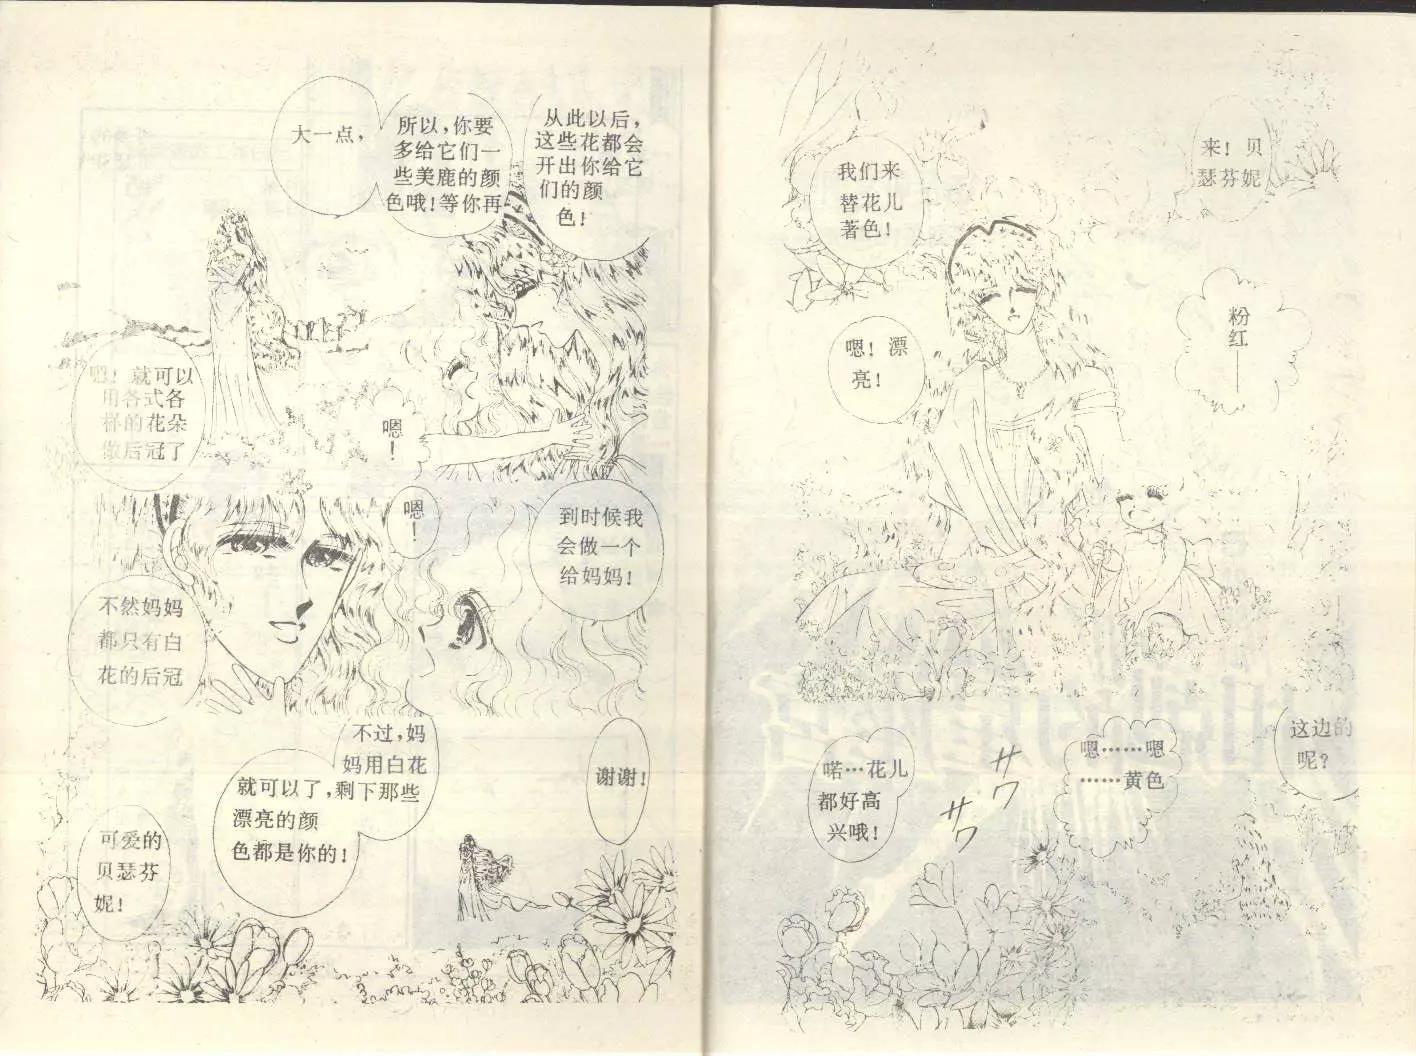 来！贝
瑟芬妮
我们来
替花儿
著色！
粉
红
—
嗯！漂
亮！
这边的
呢？
嗯……嗯
……黄色
喏…花儿
都好高
兴哦！
サワ
サワ
从此以后，
这些花都会
开出你给它
们的颜
色！
所以，你要
多给它们一
些美鹿的颜
色哦！等你再
大一点，
嗯！
嗯！就可以
用各式各
样的花朵
做后冠了
到时候我
会做一个
给妈妈！
嗯！
不然妈妈
都只有白
花的后冠
谢谢！
不过，妈
妈用白花
就可以了，剩下那些
漂亮的颜
色都是你的！
可爱的
贝瑟芬
妮！